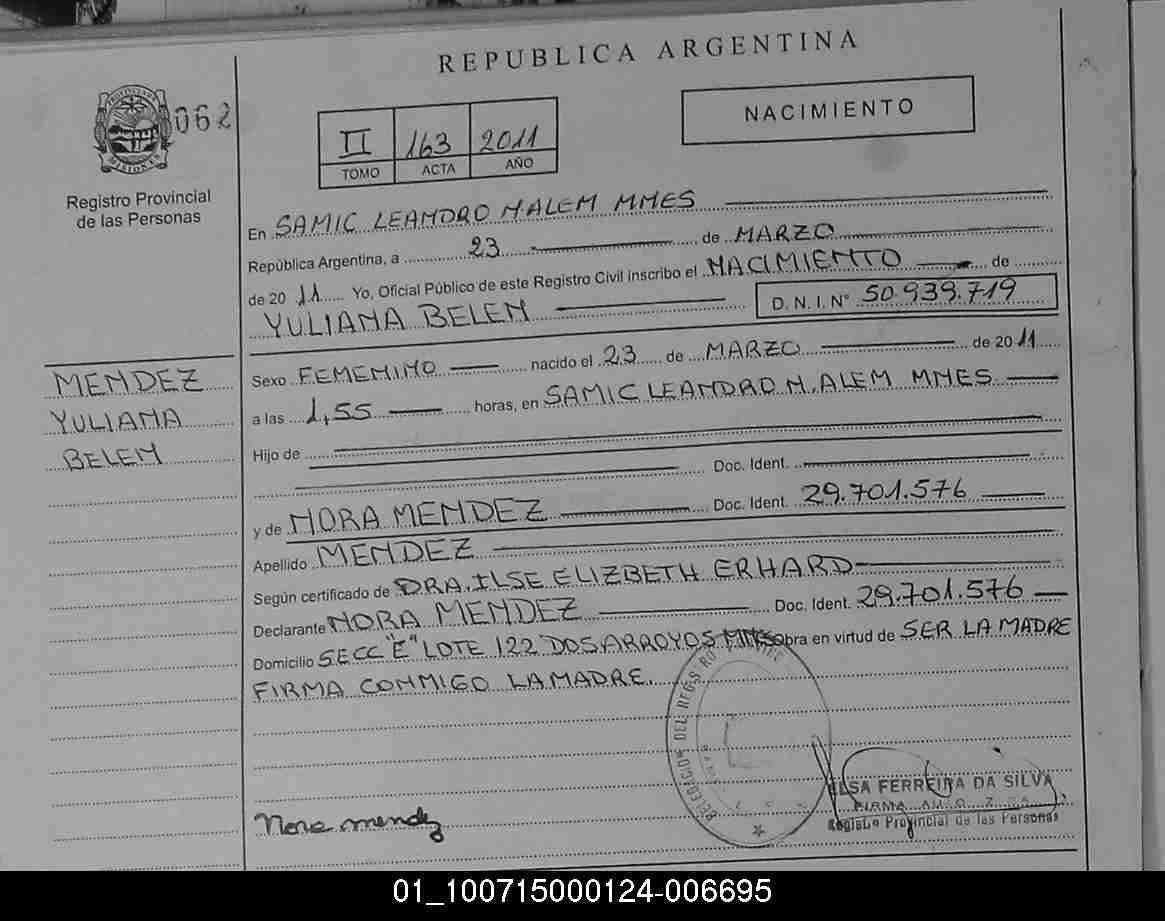 REPUBLICA ARGENTINA
062
PROVINCIA DE MISIONES
Registro Provincial
de las Personas
II 163 2011
TOMO ACTA AÑO
NACIMIENTO
En SAMIC LEANDRO N ALEM MNES
República Argentina, a 23 de MARZO
de 2011 Yo, Oficial Público de este Registro Civil inscribo el NACIMIENTO de
YULIANA BELEN D. N. I. N° 50.939.719
MENDEZ
YULIANA
BELEN
Sexo FEMENINO nacido el 23 de MARZO de 2011
a las 1,55 horas, en SAMIC LEANDRO N. ALEM MNES
Hijo de
Doc. Ident.
y de NORA MENDEZ Doc. Ident. 29.701.576
Apellido MENDEZ
Según certificado de DRA. ILSE ELIZBETH ERHARD
Declarante NORA MENDEZ Doc. Ident. 29.701.576
Domicilio SECC "E" LOTE 122 DOS ARROYOS MNES obra en virtud de SER LA MADRE
FIRMA CONMIGO LA MADRE.
DELEGACION DEL REGISTRO
Nora mendez
ELSA FERREIRA DA SILVA
FIRMA
Registro Provincial de las Personas
01_100715000124-006695